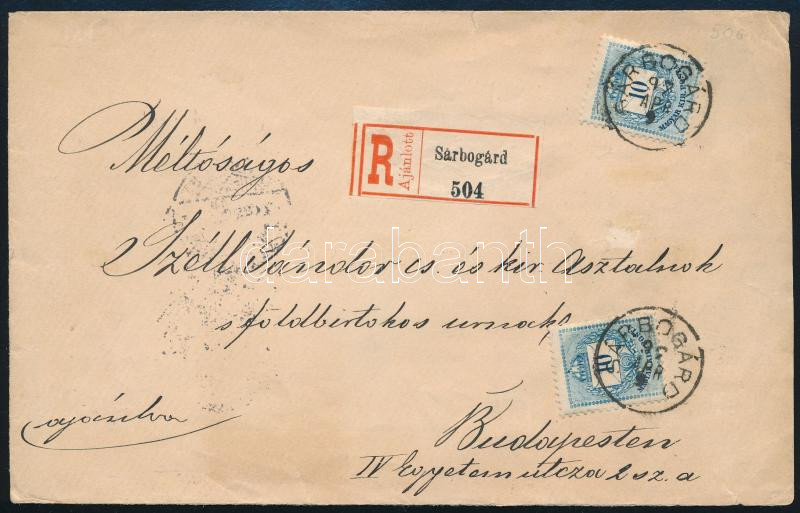 506
SÁRBOGÁRD
10
MAGYAR KIR. POSTA
R Ajánlott Sárbogárd 504
Méltóságos
Széll Sándor cs. és kir. Asztalnok
s földbirtokos urnak
SÁRBOGÁRD
10
ajánlva
Budapesten
IV Egyetem utcza 2 sz. a
darabanth